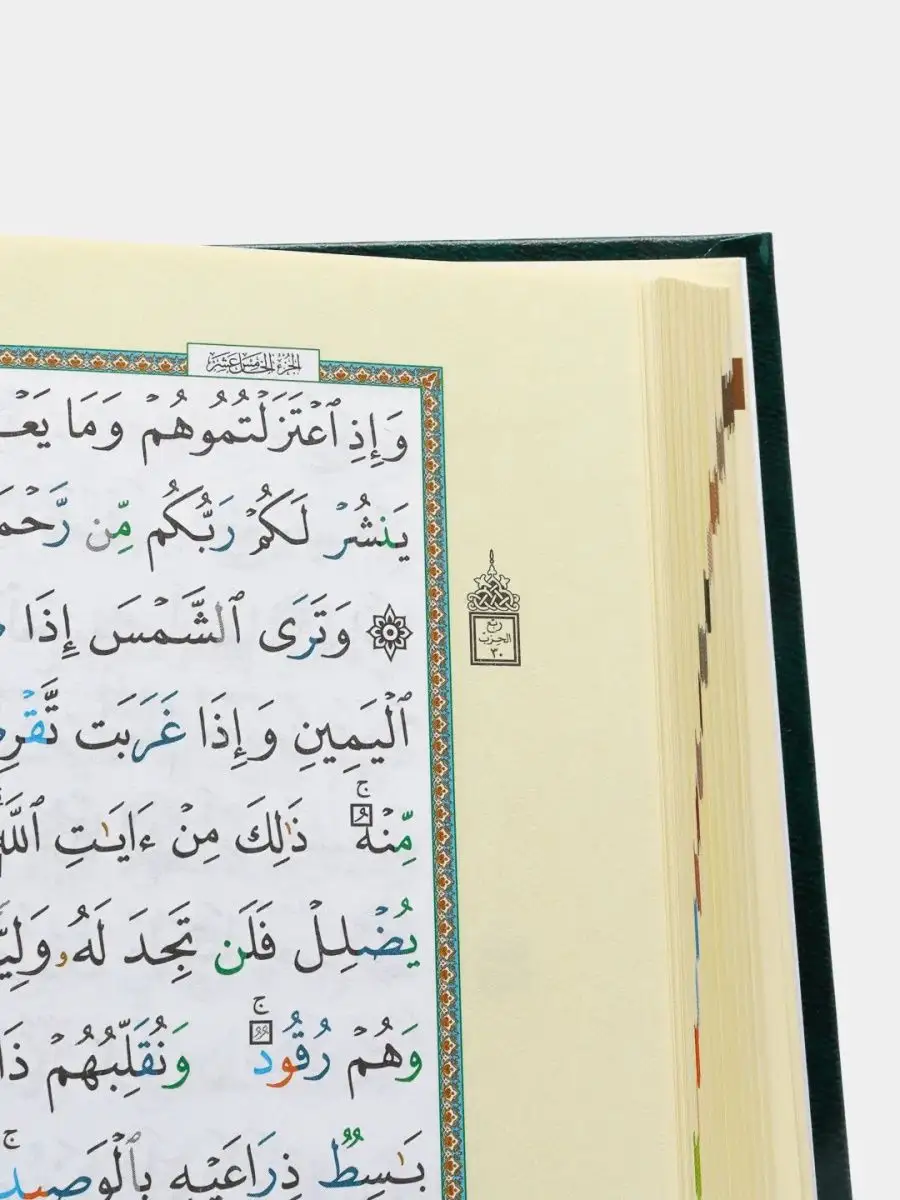 الجزء الخامس عشر
وَإِذِ ٱعْتَزَلْتُمُوهُمْ وَمَا يَعْـ
يَنشُرْ لَكُمْ رَبُّكُم مِّن رَّحْمَـ
۞ وَتَرَى ٱلشَّمْسَ إِذَا
ربع
الحزب
٣٠
ٱلْيَمِينِ وَإِذَا غَرَبَت تَّقْرِضـ
مِّنْهُ ۚ ذَٰلِكَ مِنْ ءَايَٰتِ ٱللَّهِ
يُضْلِلْ فَلَن تَجِدَ لَهُۥ وَلِيًّـ
وَهُمْ رُقُودٌ ۚ وَنُقَلِّبُهُمْ ذَا
بَٰسِطٌ ذِرَاعَيْهِ بِٱلْوَصِيدِ ۚ